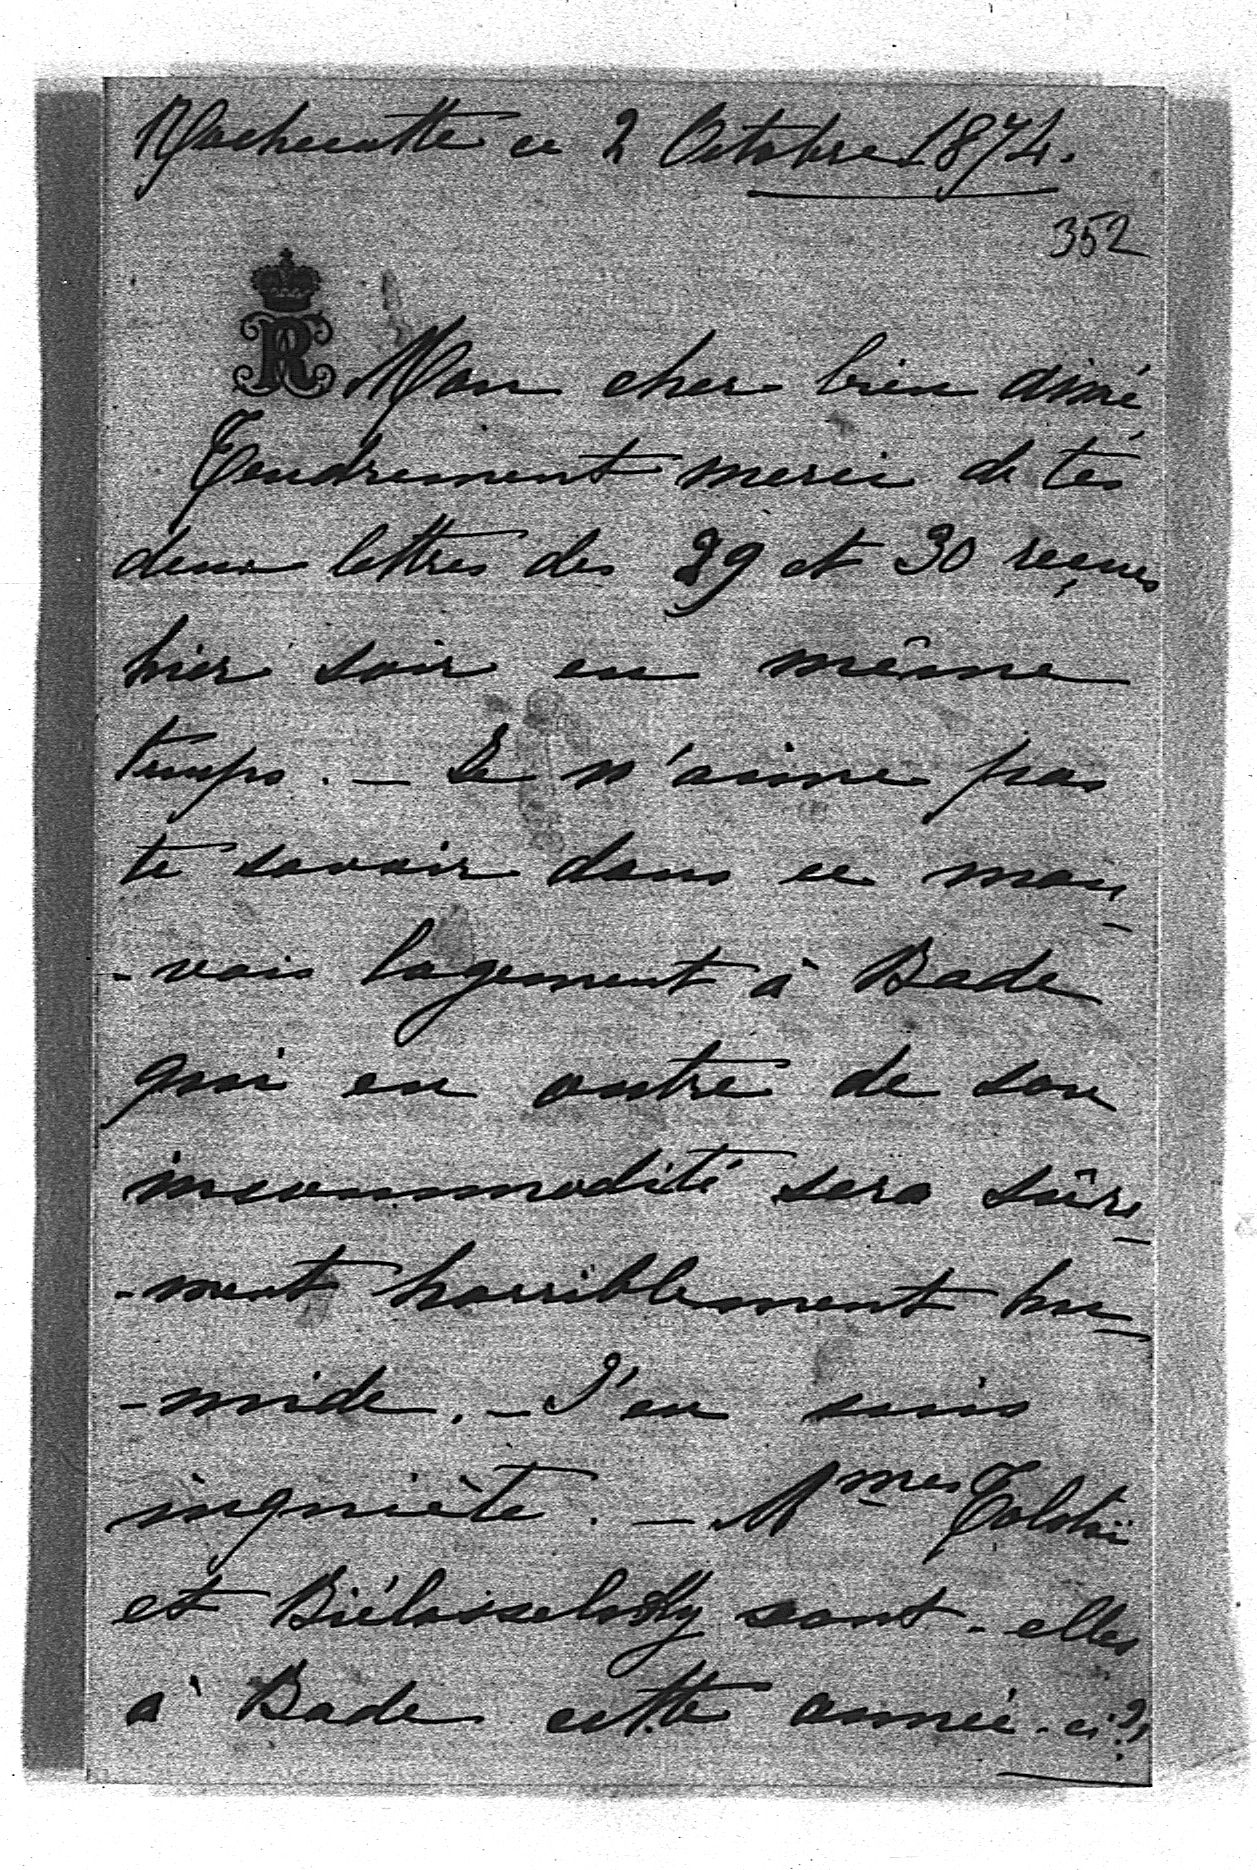 Rochecotte ce 2 Octobre 1874.
352
R
Mon cher bien aimé
Tendrement merci de tes
deux lettres des 29 et 30 reçues
hier soir en même
temps. – Je n'aime pas
te savoir dans ce mau
-vais logement à Bade
qui en outre de son
incommodité sera sûre-
-ment horriblement hu-
-mide. – J'en suis
inquiète. – Mmes Tolstoï
et Biélosselsky sont-elles
à Bade cette année-ci?